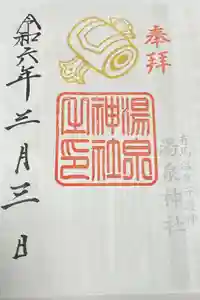 奉拝
湯泉神社
湯泉
神社
之印
令和六年三月三日